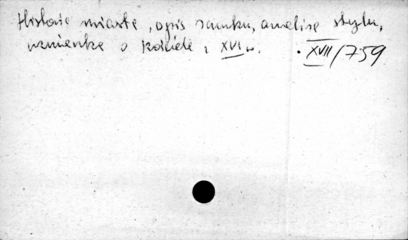 Historie miasta, opis zamku, analiza stylu,
wzmianka o kościele z XVI w. • XVII/759